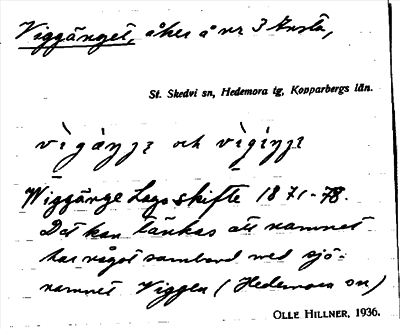 Viggänget, åker å nr 3 Ansta,
St. Skedvi sn, Hedemora tg, Kopparbergs län.
och
Wiggänge Laga skifte 1871-78.
Det kan tänkas att namnet
har något samband med sjö-
namnet Viggen (Hedemora sn)
OLLE HILLNER, 1936.